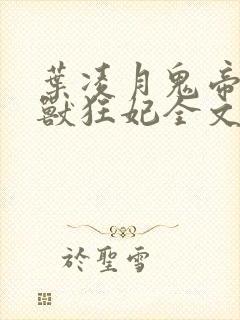 葉凌月鬼帝
獸狂妃全文
於聖雪